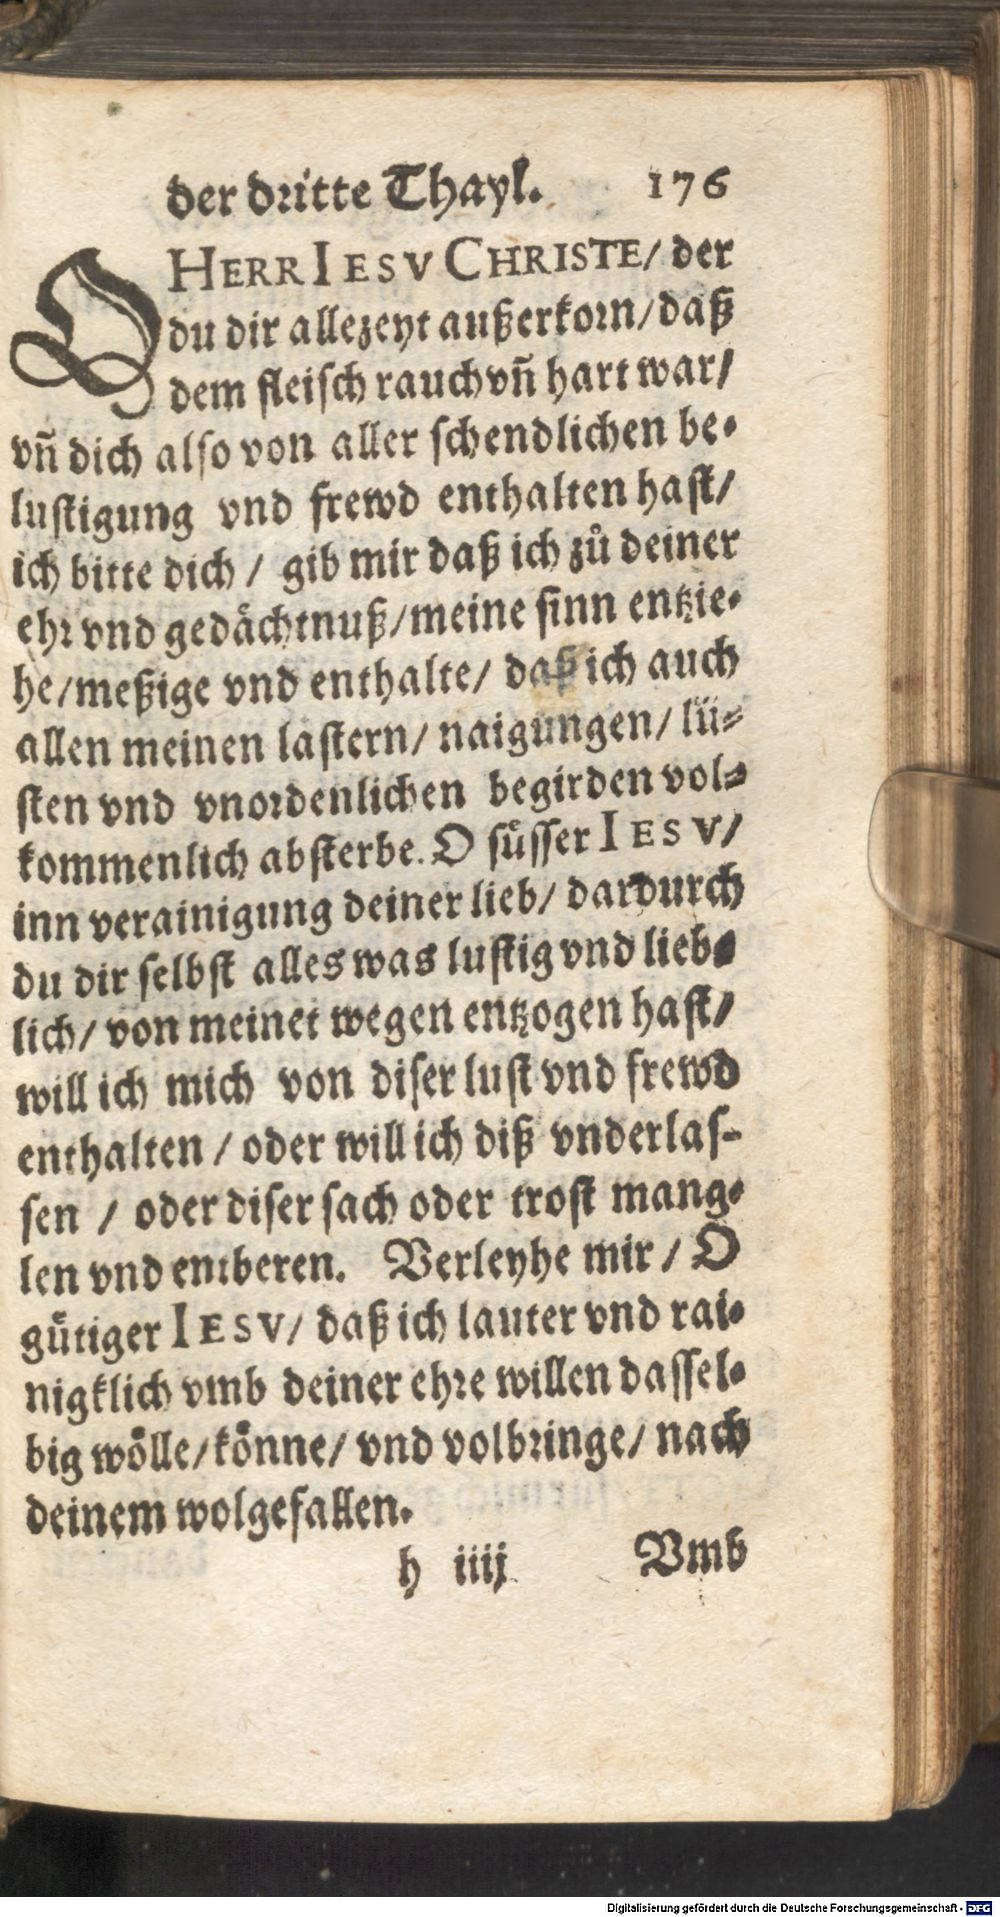 der dritte Thayl. 176
O HERR IESV CHRISTE/ der
du dir allezeyt außerkorn/ daß
dem fleisch rauch vñ hart war/
vñ dich also von aller schendlichen be-
lustigung vnd frewd enthalten hast/
ich bitte dich / gib mir daß ich zů deiner
ehr vnd gedächtnuß/ meine sinn entzie-
he/ meßige vnd enthalte/ daß ich auch
allen meinen lastern/ naigungen/ lü-
sten vnd vnordenlichen begirden vol-
kommenlich absterbe. O süsser IESV/
inn verainigung deiner lieb/ dardurch
du dir selbst alles was lustig vnd lieb-
lich/ von meinet wegen entzogen hast/
will ich mich von diser lust vnd frewd
enthalten / oder will ich diß vnderlas-
sen / oder diser sach oder trost mang-
len vnd entberen. Verleyhe mir / O
gütiger IESV/ daß ich lauter vnd rai-
nigklich vmb deiner ehre willen dassel-
big wölle/ könne/ vnd volbringe/ nach
deinem wolgefallen.
h iiij Vmb
Digitalisierung gefördert durch die Deutsche Forschungsgemeinschaft - DFG